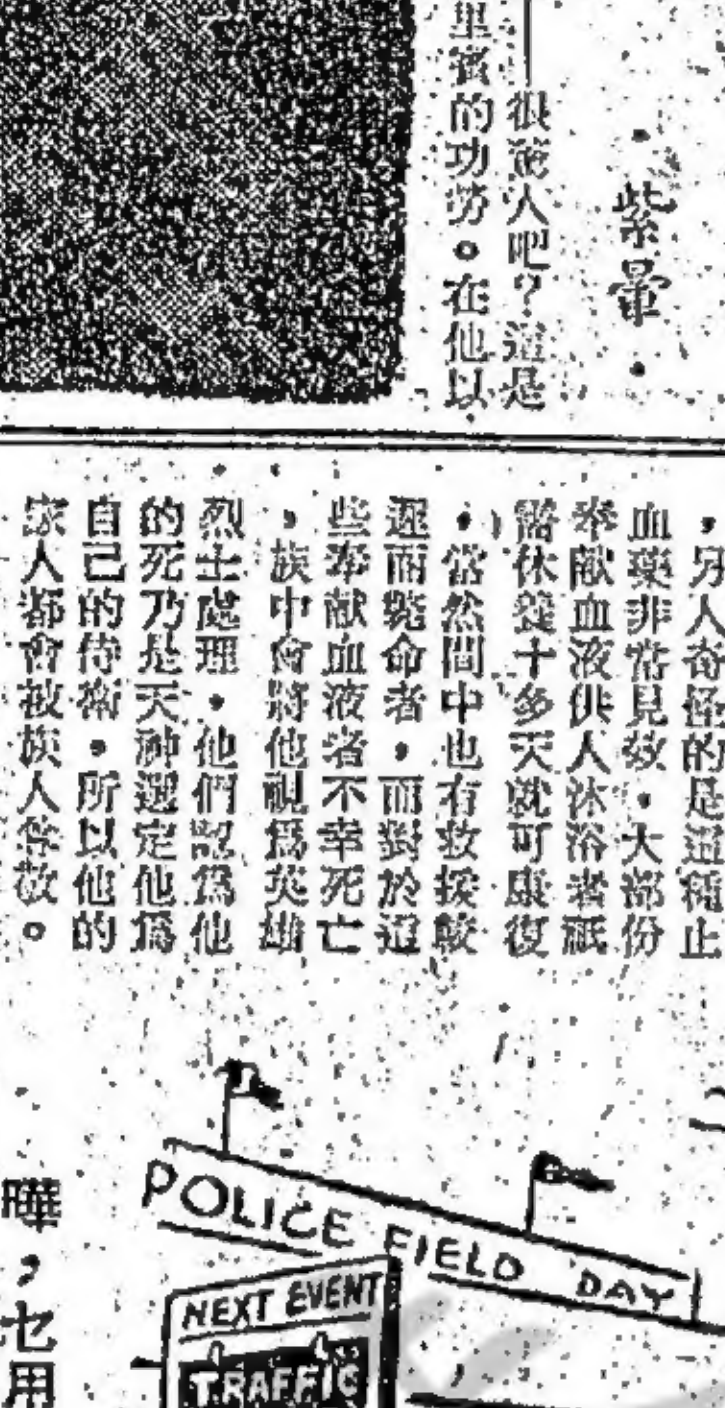 ・紫暈・
很驚人吧？這是
里賓的功勞。在他以
，另人奇怪的是這種止
血藥非常見效，大部份
奉獻血液供人沐浴者祇
需休養十多天就可康復
，當然間中也有救援較
遲而斃命者，而對於這
些奉獻血液者不幸死亡
，族中會將他視爲英雄
烈士處理，他們認爲他
的死乃是天神選定他爲
自己的侍衛，所以他的
家人都會被族人尊敬。
POLICE FIELD DAY
NEXT EVENT
TRAFFIC
曄，乜用